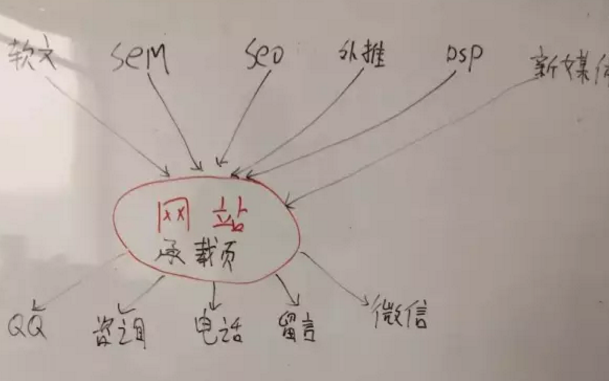 软文 SEM SEO 外推 DSP 新媒体
网站
承载页
QQ 咨询 电话 留言 微信